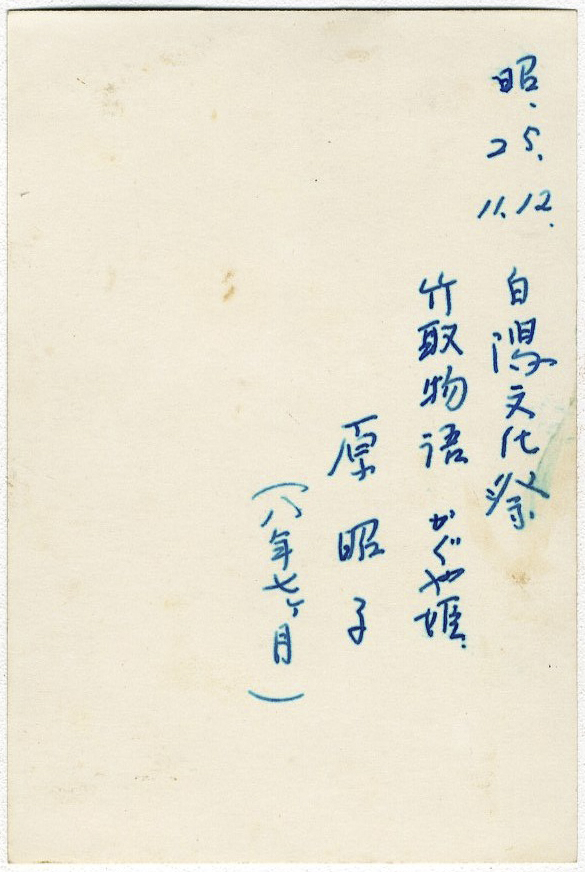 昭.25.11.12. 白陽文化祭
竹取物語 かぐや姫.
原昭子
(八年七ヶ月)